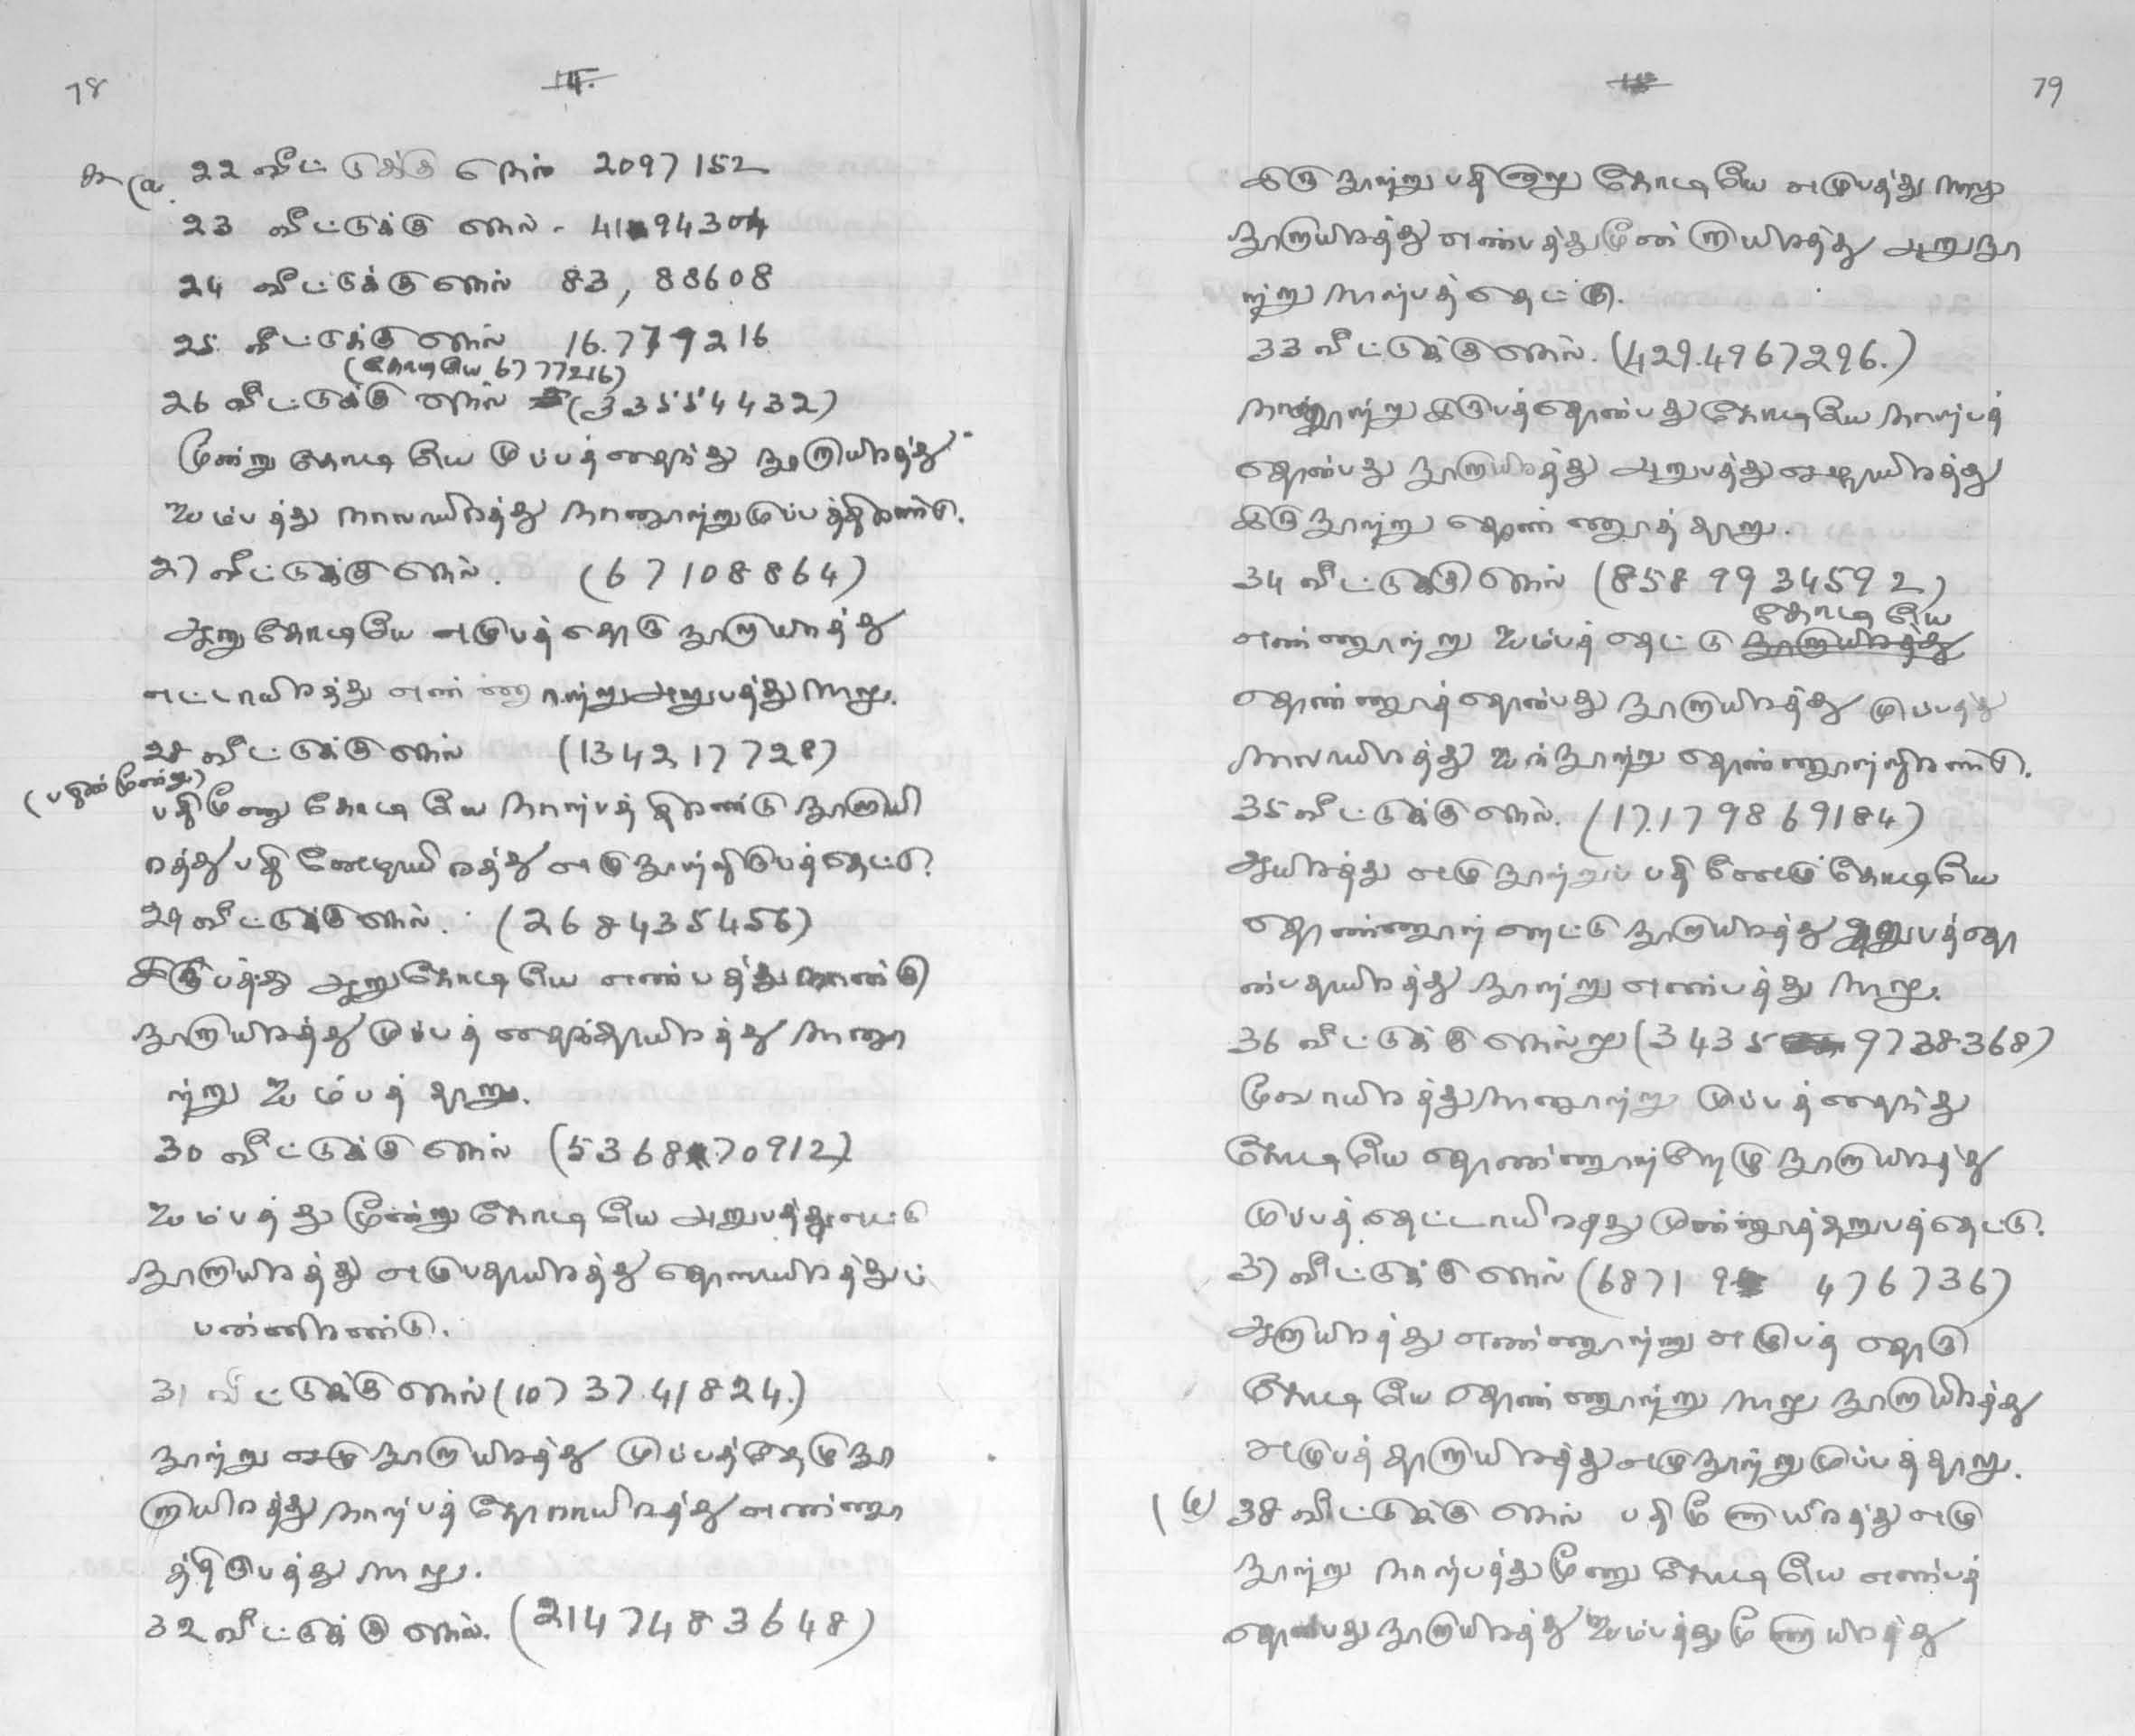 78
14.
22 வீட்டுக்கு நெல் 2097152
23 வீட்டுக்கு நெல் - 4194304
24 வீட்டுக்கு நெல் 83, 88608
25 வீட்டுக்கு நெல் 16.779216
(கோடியே 6777216)
26 வீட்டுக்கு நெல் (33554432)
மூன்று கோடியே முப்பத்தைந்து நூறாயிரத்து
ஐம்பத்து நாலாயிரத்து நானூற்று முப்பத்திரண்டு.
27 வீட்டுக்கு நெல். (67108864)
ஆறு கோடியே எழுபத்தொரு நூறாயிரத்து
எட்டாயிரத்து எண்ணூற்று அறுபத்து நாலு.
28 வீட்டுக்கு நெல் (134217728)
(பதின் மூன்று)
பதிமூணு கோடியே நாற்பத்திரண்டு நூறாயி
ரத்து பதினேழாயிரத்து எழு நூற்றிருபத்தெட்டு.
29 வீட்டுக்கு நெல். (268435456)
இருபத்து ஆறு கோடியே எண்பத்து நாண்கு
நூறாயிரத்து முப்பத்தைந்தாயிரத்து நானூ
ற்று ஐம்பத்தாறு.
30 வீட்டுக்கு நெல் (536870912)
ஐம்பத்து மூன்று கோடியே அறுபத்து எட்டு
நூறாயிரத்து எழுபதாயிரத்து தொளாயிரத்துப்
பன்னிரண்டு.
31 வீட்டுக்கு நெல் (10737.41824.)
நூற்று எழு நூறாயிரத்து முப்பத்தேழு நூ
றாயிரத்து நாற்பத்தோராயிரத்து எண்ணூ
த்திருபத்து நாலு.
32 வீட்டுக்கு நெல். (2147483648)
79
இரு நூற்று பதினாலு கோடியே எழுபத்து நாலு
நூறாயிரத்து எண்பத்து மூன்றாயிரத்து அறுநூ
ற்று நாற்பத்தெட்டு.
33 வீட்டுக்கு நெல். (429.4967296.)
நானூற்று இருபத்தொன்பது கோடியே நாற்பத்
தொன்பது நூறாயிரத்து அறுபத்து எழாயிரத்து
இருநூற்று தொண்ணூத்தாறு.
34 வீட்டுக்கு நெல் (8589934592)
கோடியே
எண்ணூற்று ஐம்பத்தெட்டு நூறாயிரத்து
தொண்ணூத்தொன்பது நூறாயிரத்து முப்பத்து
நாலாயிரத்து ஐந்நூற்று தொண்ணூற்றிரண்டு.
35 வீட்டுக்கு நெல். (17.179869184)
ஆயிரத்து எழு நூற்றுப் பதினேழு கோடியே
தொண்ணூற் றெட்டு நூறாயிரத்து அறுபத்தொ
ன்பதாயிரத்து நூற்று எண்பத்து நாலு.
36 வீட்டுக்கு நெல் (34359738368)
மூவாயிரத்து நானூற்று முப்பத்தைந்து
கோடியே தொண்ணூற்றேழு நூறாயிரத்து
முப்பத்தெட்டாயிரத்து முன்னூத்தறுபத்தெட்டு.
37 வீட்டுக்கு நெல் (68719 476736)
ஆறாயிரத்து எண்ணூற்று எழுபத்தொரு
கோடியே தொண்ணூற்று நாலு நூறாயிரத்து
எழுபத்தாறாயிரத்து எழுநூற்று முப்பத்தாறு.
38 வீட்டுக்கு நெல் பதிமூணாயிரத்து எழு
நூற்று நாற்பத்து மூணு கோடியே எண்பத்
தொன்பது நூறாயிரத்து ஐம்பத்து மூணாயிரத்து